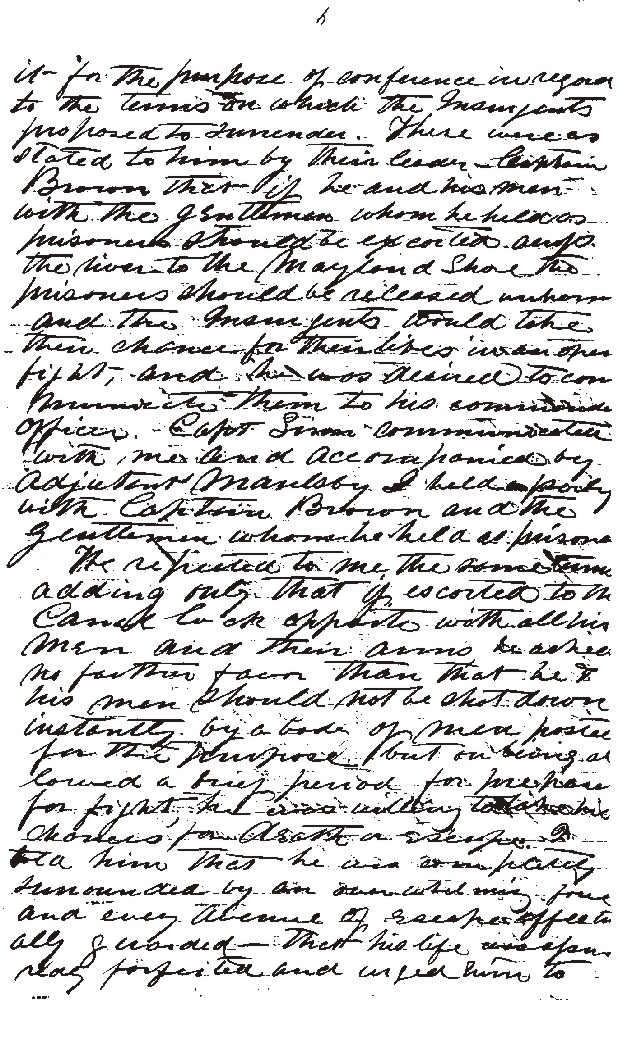 6
it for the purpose of conference in regar
to the terms on which the Insurgents
proposed to surrender. There were as
stated to him by their leader Captain
Brown that if he and his men
with the gentlemen whom he held as
prisoners should be escorted
the river to the Mayland Shore the
prisoners should be released unharm
and the Insurgents would take
their chance for their lives in an open
fight, and he was desired to com
municate them to his commande
officer. Capt Sinn communicated
with me and accompanied by
Adjutant Maulsby I held a parley
with Captain Brown and the
Gentlemen whom he held as prisone
He repeated to me the same terms
adding only that if escorted to th
Canal lock opposite with all his
men and their arms he asked
no farther favor than that he &
his men should not be shot down
instantly by a body of men posted
for the purpose, but on being al
lowed a brief period for prepara
for fight, he was willing to take his
chances for death or escape. I
told him that he was completely
surrounded by an overwhelming force
and every avenue of escape effectu
ally guarded — that his life was
ready forfeited and urged him to